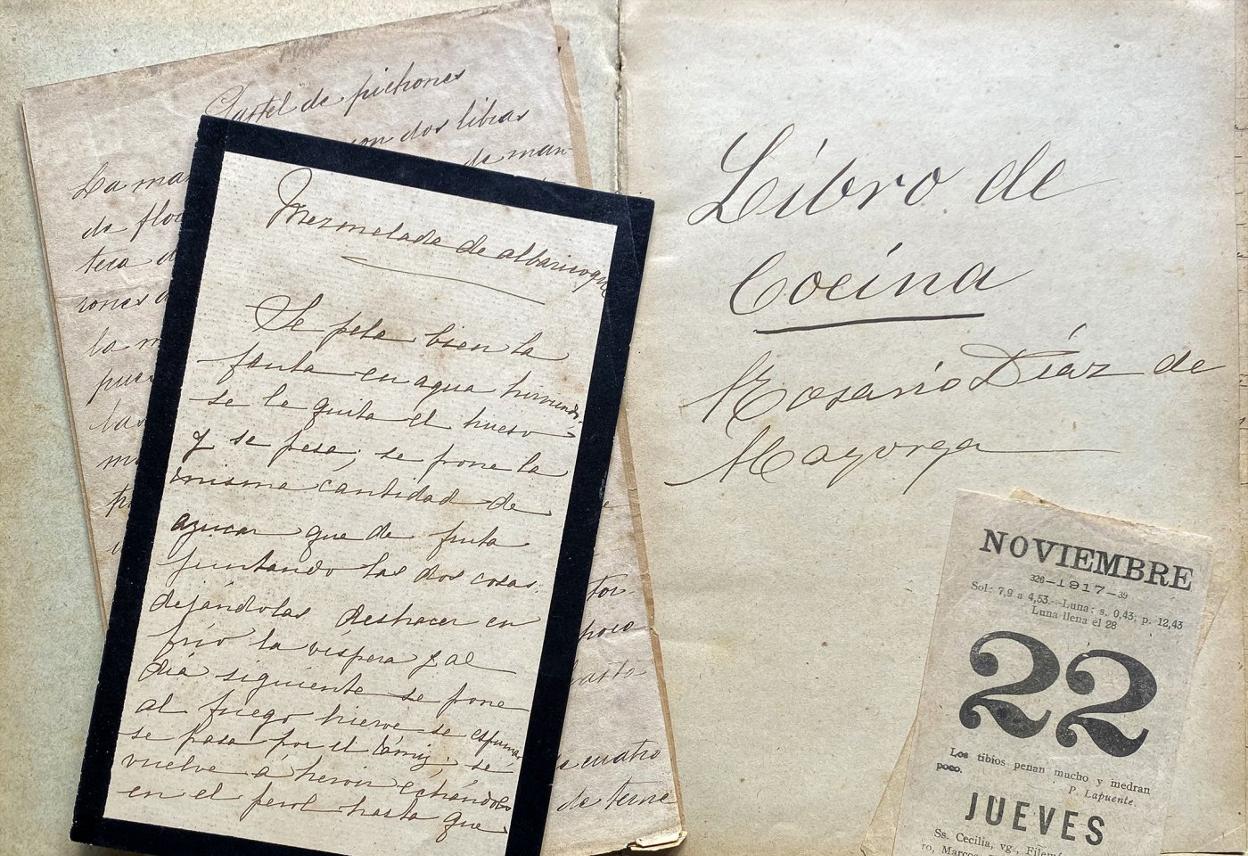 Pastel de pichones
La ma
con dos libras
de flo
de man
teca d
rones d
la m
pue
las
m
p
a cuatro
de terne
poco
Mermelada de albaricoque
Se pela bien la
fruta en agua hirviendo,
se le quita el hueso
y se pesa; se pone la
misma cantidad de
azucar que de fruta
juntando las dos cosas:
dejándolas deshacer en
frio la vispera y al
dia siguiente se pone
al fuego hierve se espuma
se pasa por el tamiz; se
vuelve á hervir echándolo
en el perol hasta que
Libro de
Cocina
Rosario Díaz de
Mayorga
NOVIEMBRE
326-1917-39
Sol: 7,9 a 4,53.—Luna: s. 0,43; p. 12,43
Luna llena el 28
22
Los tibios penan mucho y medran
poco.
P. Lapuente.
JUEVES
Ss. Cecilia, vg., Filem
ro, Marcos